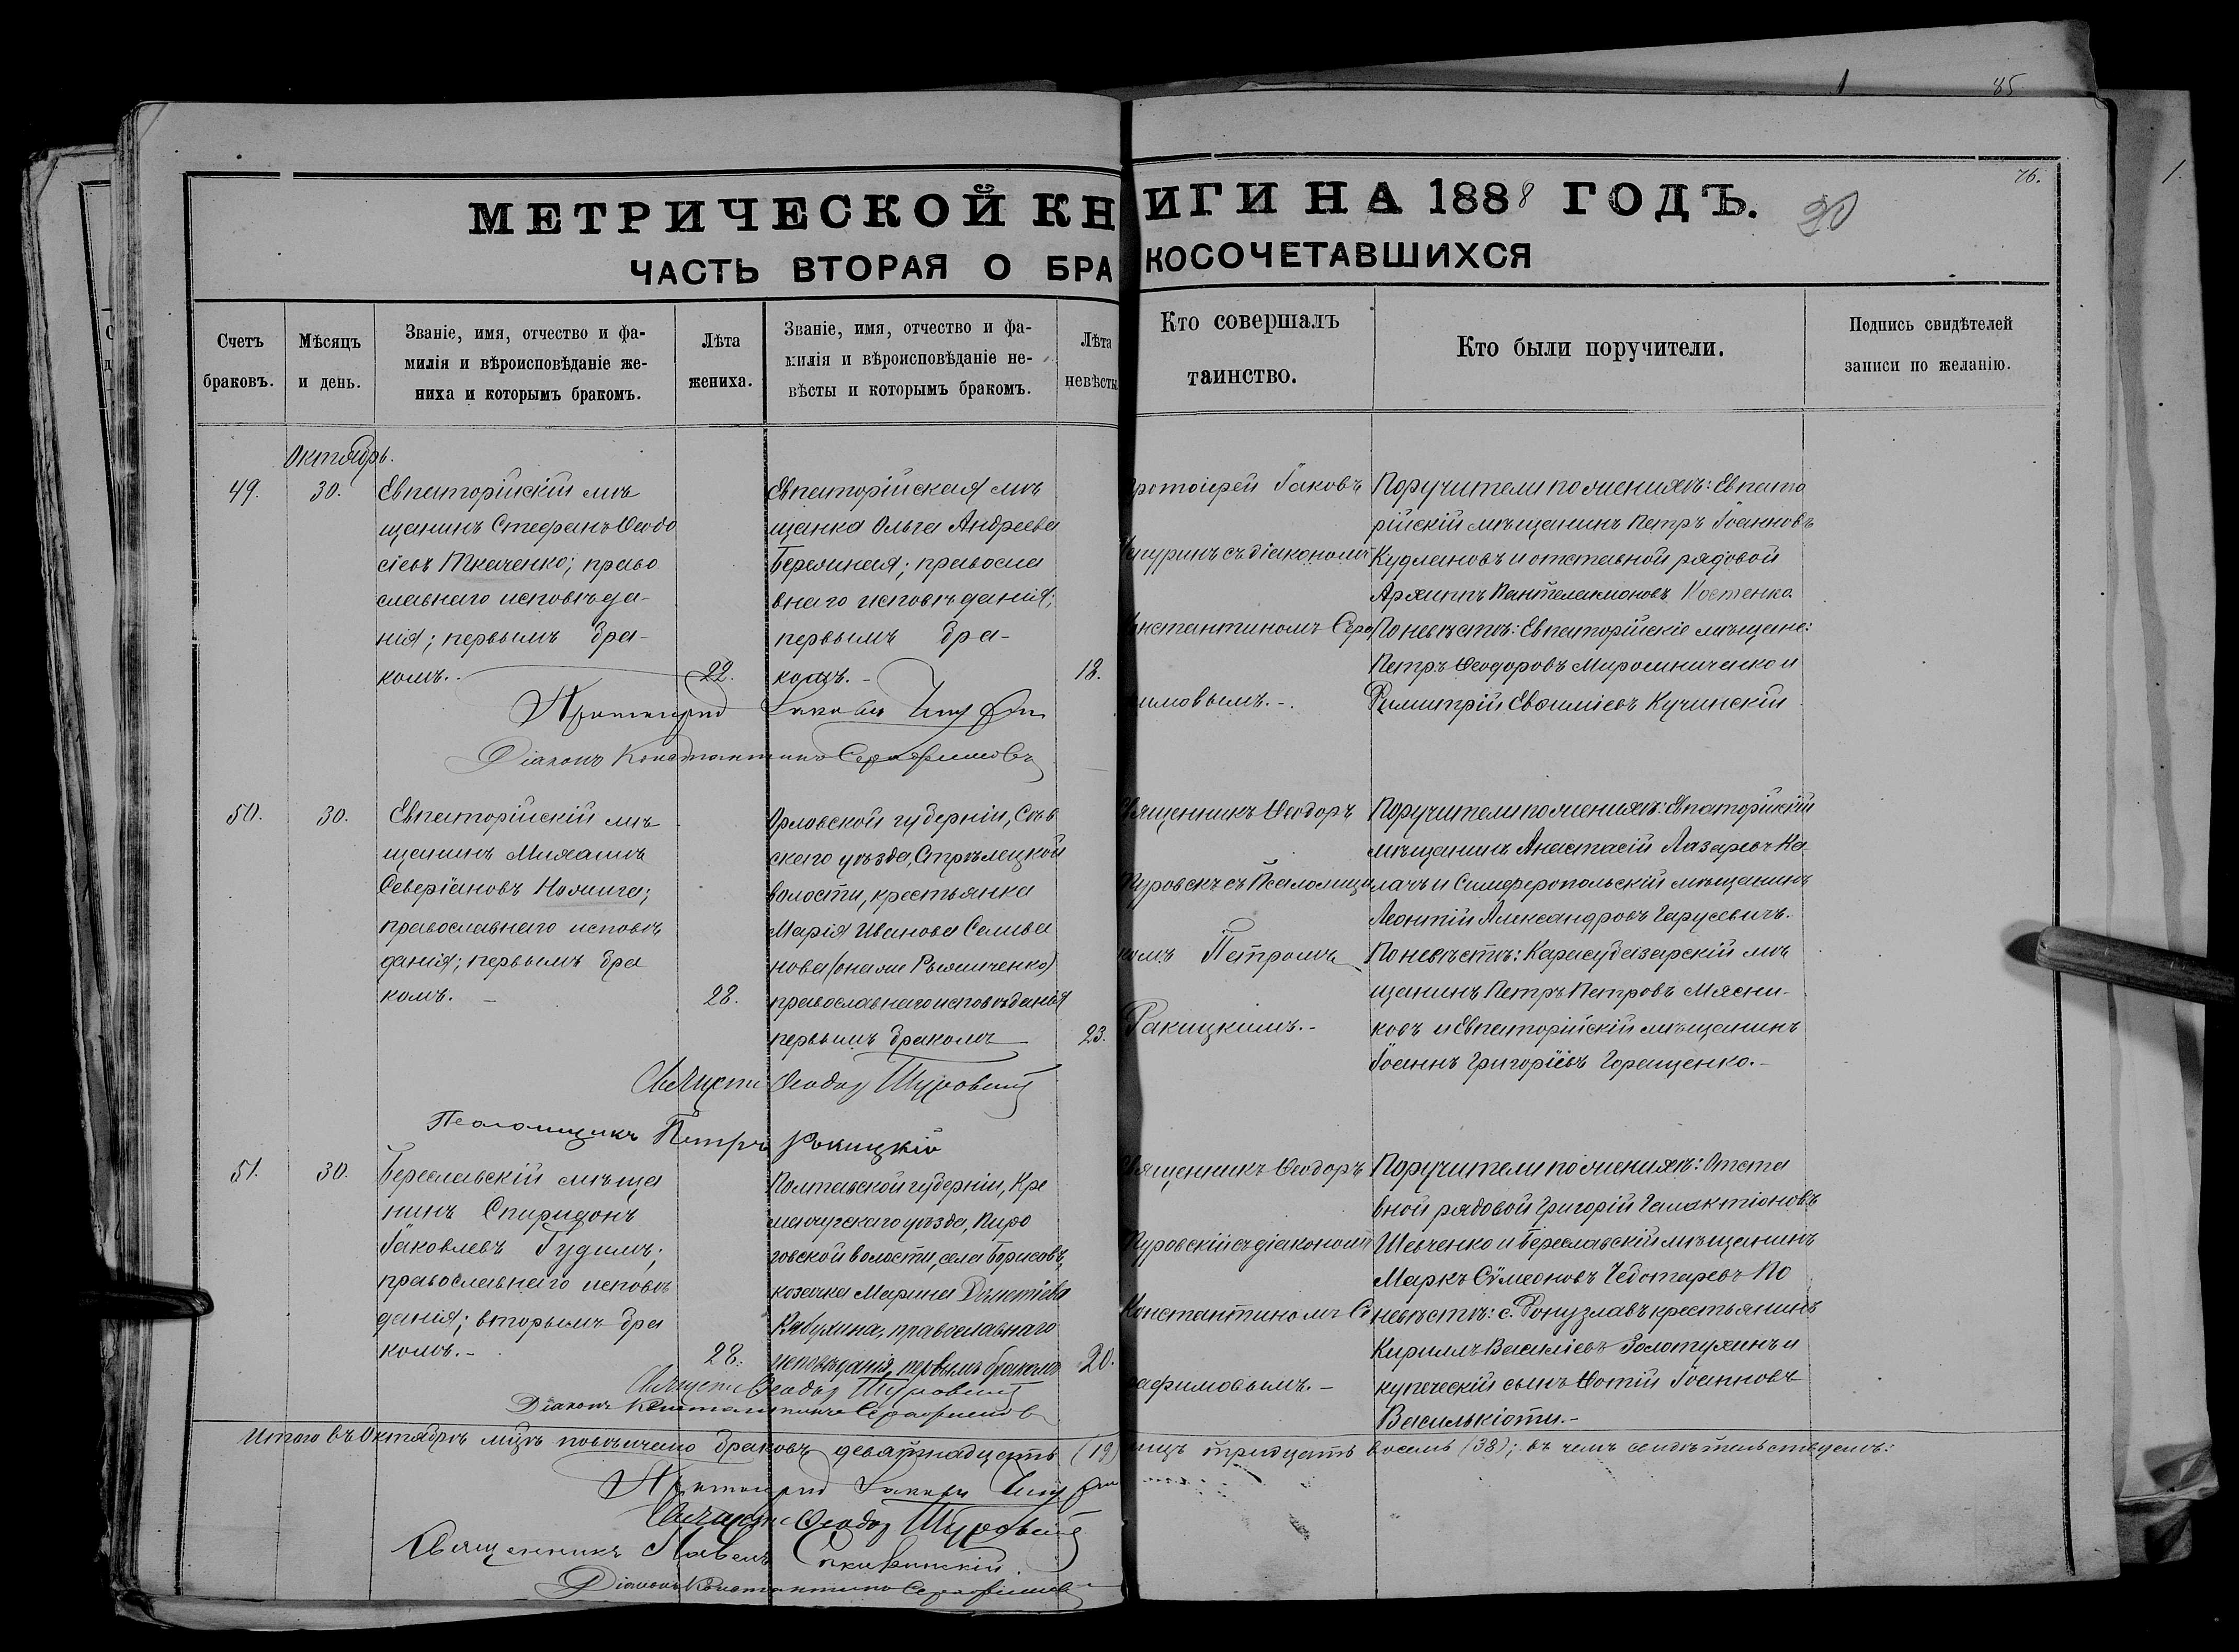 85
76.
1.
МЕТРИЧЕСКОЙ КНИГИ НА 1888 ГОДЪ. 20
ЧАСТЬ ВТОРАЯ О БРАКОСОЧЕТАВШИХСЯ
Счетъ браковъ.
Мѣсяцъ и день.
Званіе, имя, отчество и фа-
милія и вѣроисповѣданіе же-
ниха и которымъ бракомъ.
Лѣта жениха.
Званіе, имя, отчество и фа-
милія и вѣроисповѣданіе не-
вѣсты и которымъ бракомъ.
Лѣта невѣсты
Кто совершалъ
таинство.
Кто были поручители.
Подпись свидѣтелей
записи по желанію.
Октябрь.
49. 30.
Евпаторійскій мѣ
щанинъ Стефанъ Ѳеодо
сіевъ Ткаченко; право
славнаго исповѣда-
нія; первымъ бра-
комъ.
22.
Евпаторійская мѣ
щанка Ольга Андреева
православ
внаго исповѣданія;
первымъ бра-
комъ.-
18.
ротоіерей Іаковъ
Чепуринъ съ діакономъ
нстантиномъ Сера
имовымъ.-
Поручители по женихѣ: Евпато
рійскій мѣщанинъ Петръ Іоанновъ
и отставной рядовой
Архиппъ Пантелеимоновъ Костенко
По невѣстѣ: Евпаторійскіе мѣщане:
Петръ Ѳеодоровъ Мирошниченко и
Димитрій Евфиміевъ Кучинскій
Протоіерей Іаковъ
Діаконъ Константинъ Серафимовъ
50. 30.
Евпаторійскій мѣ
щанинъ Михаилъ
Северіановъ
православнаго исповѣ
данія; первымъ бра
комъ.-
28.
Орловской губерніи, Сѣв
скаго уѣзда, Стрѣлецкой
волости, крестьянка
Марія Иванова Селива
нова (она же
православнаго исповѣданія
первымъ бракомъ
23.
вященникъ Ѳеодоръ
съ Псаломщи
комъ Петромъ
Ракицкимъ.-
Поручители по женихѣ: Евпаторійскій
мѣщанинъ Анастасій Лазаревъ Ка-
лачъ и Симферопольскій мѣщанинъ
Леонтій Александровъ Гарусевичъ.
По невѣстѣ: Карасубазарскій мѣ
щанинъ Петръ Петровъ Мясни-
ковъ и Евпаторійскій мѣщанинъ
Іоаннъ Григоріевъ Горащенко.-
Ѳеодоръ
Псаломщикъ Петръ Ракицкій
51. 30.
Бериславскій мѣща
нинъ Спиридонъ
Іаковлевъ Гудимъ;
православнаго исповѣ
данія; вторымъ бра
комъ.-
28.
Полтавской губерніи, Кре
менчугскаго уѣзда,
волости, села
козачка Марина
православнаго
исповѣданія, первымъ бракомъ
20.
вященникъ Ѳеодоръ
съ діакономъ
Константиномъ Се
рафимовымъ.-
Поручители по женихѣ: Отста
вной рядовой Григорій Галактіоновъ
Шевченко и Бериславскій мѣщанинъ
Маркъ Сѵмеоновъ Чеботаревъ По
невѣстѣ: с. Донузлавъ крестьянинъ
Кириллъ Василіевъ Золотухинъ и
купеческій сынъ Фотій Іоанновъ
Василькіоти.-
Ѳеодоръ
Діаконъ Константинъ Серафимовъ
Итого въ Октябрѣ мцѣ повѣнчано браковъ девятнадцать (19) лицъ тридцать восемь (38); въ чемъ свидѣтельствуемъ:
Протоіерей Іаковъ
Ѳеодоръ
Священникъ Павелъ
Діаконъ Константинъ Серафимовъ